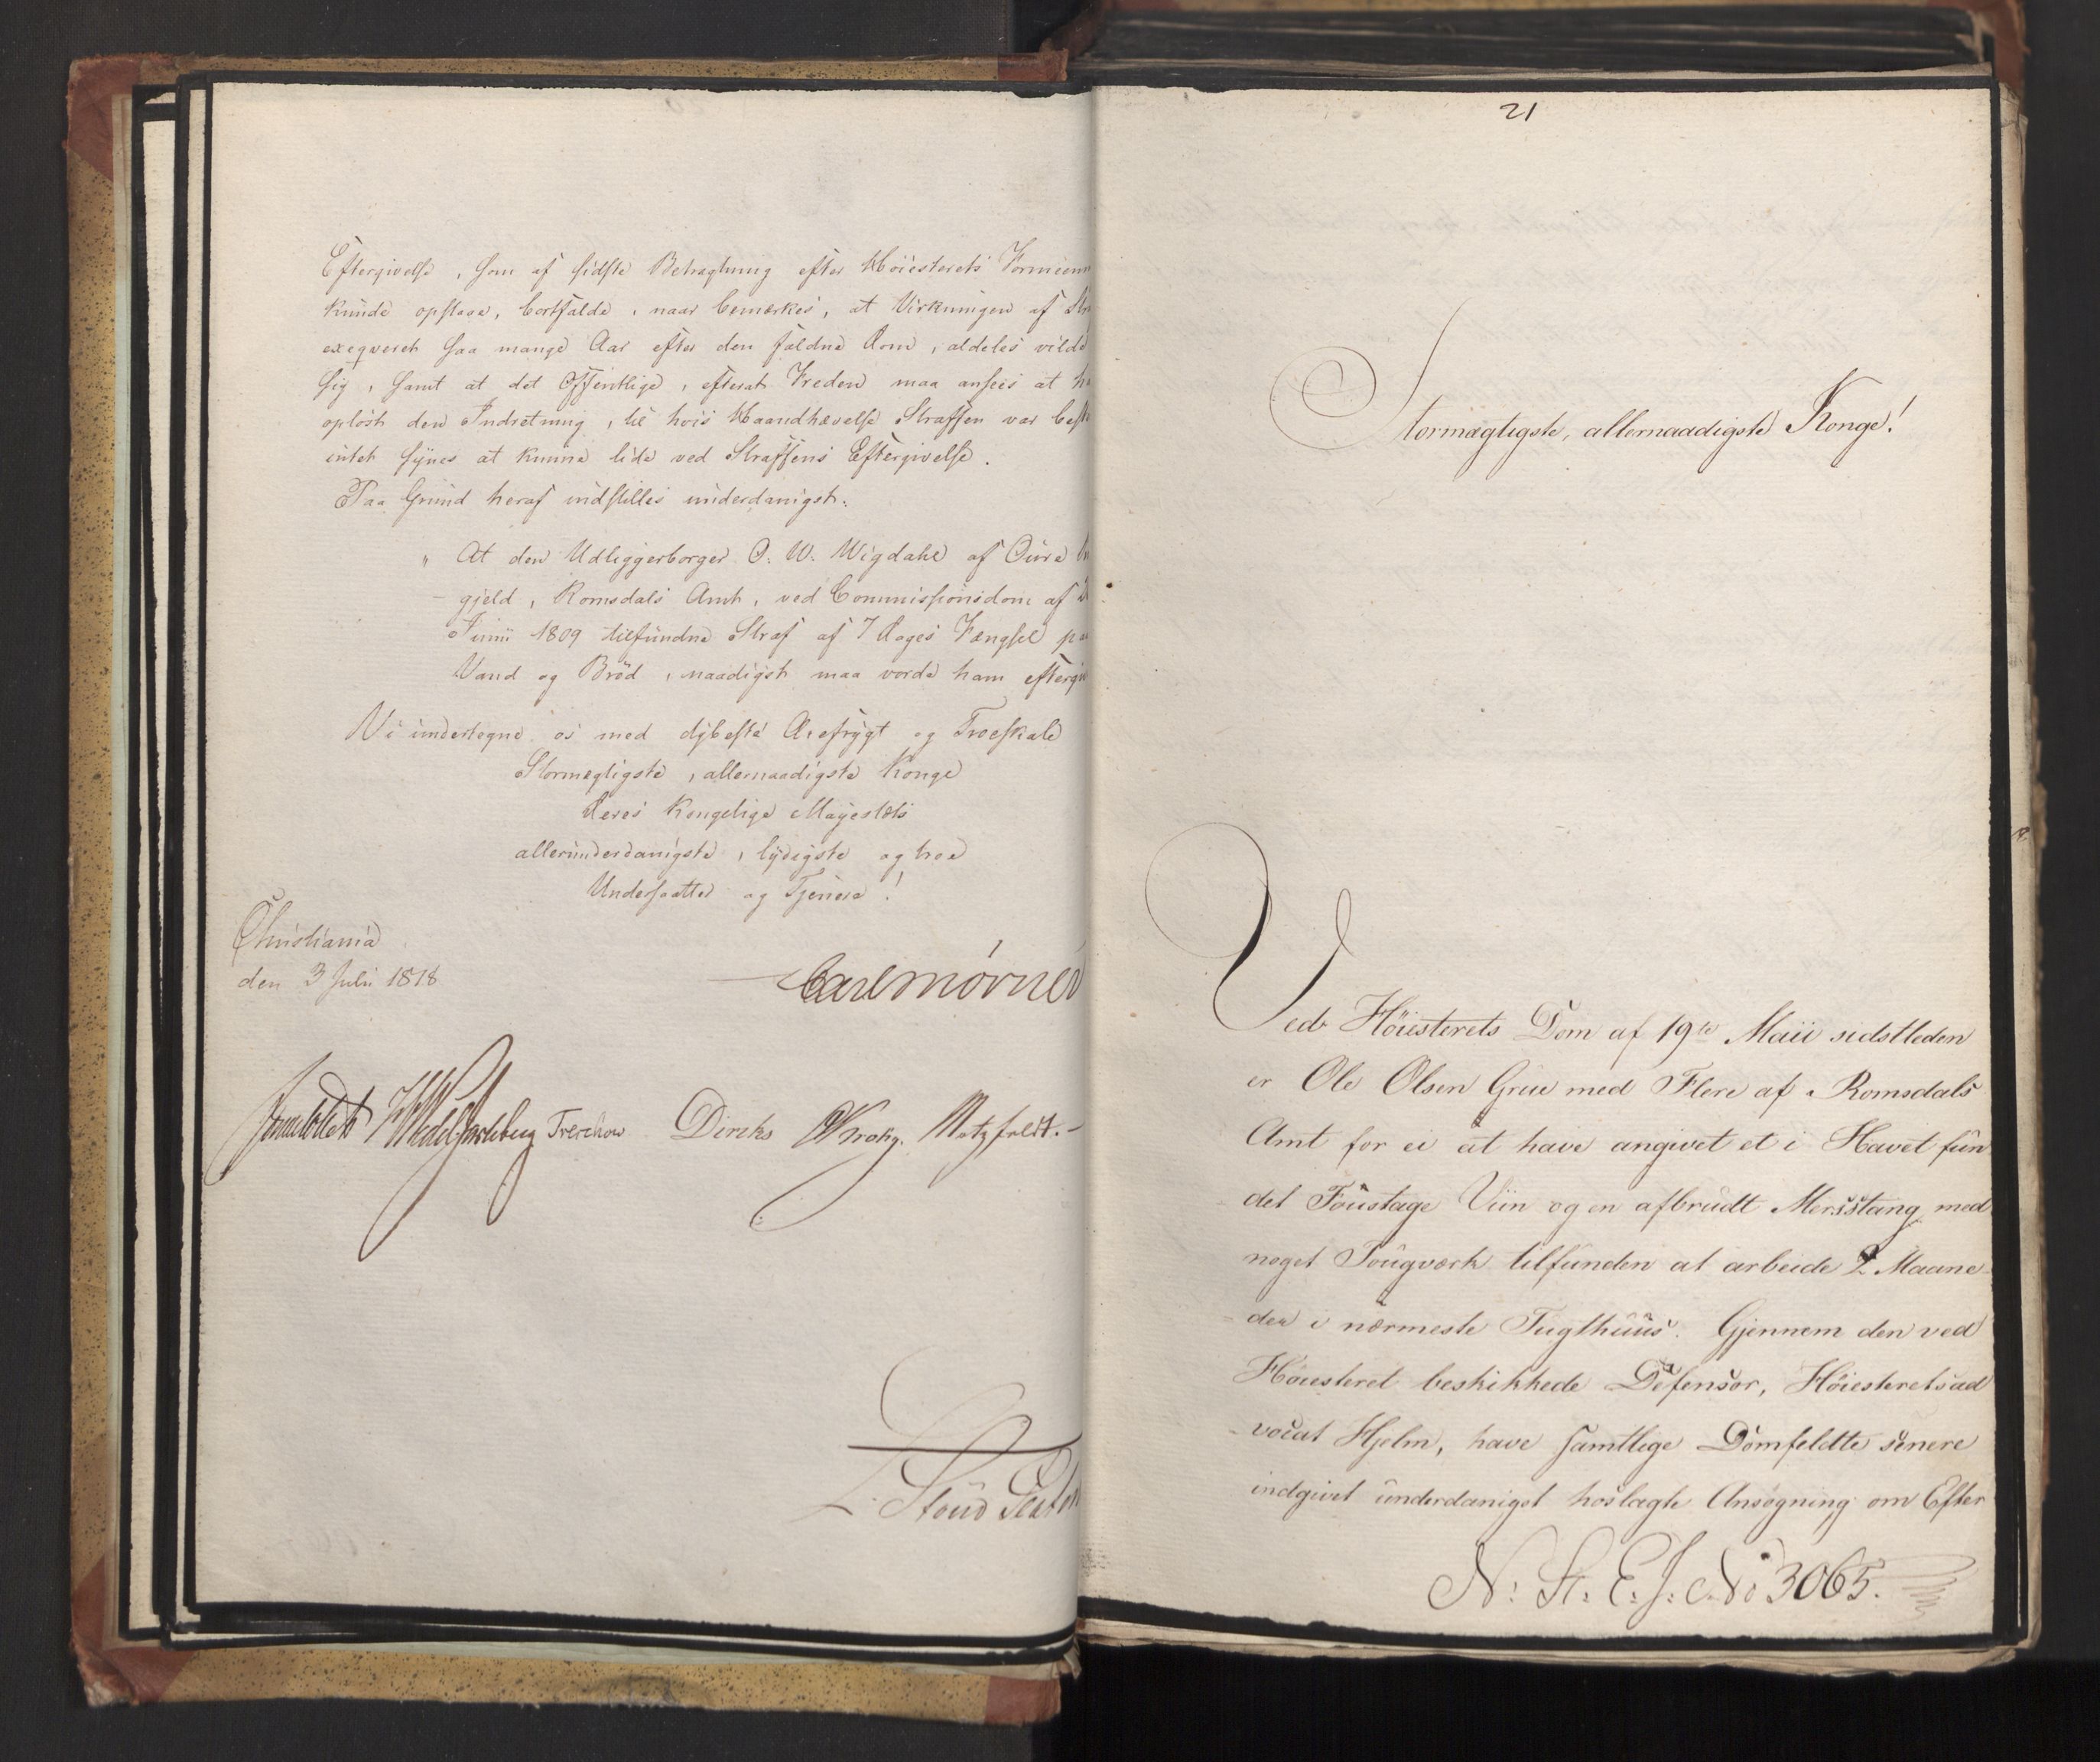 Eftergivelse, som af sidste Betragtning efter Høiesterets Formeen
kunde opstaae, bortfalde, naar bemærkes, at Virkningen af
exeqveret saa mange Aar efter den faldne Dom, aldeles vilde
sig, samt at det Offentlige, efterat Freden maa ansees at
opløst den Indretning, til hvis Haandhævelse Straffen var
intet synes at kunne lide ved Straffens Eftergivelse.
Paa Grund heraf indstilles underdanigst:
" At den Udliggerborger O. W. Wigdahl af Oure
gjeld, Romsdals Amt, ved Commissionsdom af
Junii 1809 tilfundne Straf af 7 Dages Fængsel paa
Vand og Brød, naadigst maa vorde ham
Vi undertegne os med dybeste Ærefrygt og Troeskab
Stormægtigste, allernaadigste Konge
Deres Kongelige Majestæts
allerunderdanigste, lydigste og troe
Undersaatter og Tjenere!
Christiania
den 3 Julii 1818
Carl Mörner
Sommerfeldt HWedel Jarlsberg Treschow Diriks Krohg. Motzfeldt.
21
Stormægtigste, allernaadigste Konge!
Ved Høiesterets Dom af 19de Maii sidstleden
er Ole Olsen Grue med Flere af Romsdals
Amt for ei at have angivet et i Havet fun
det Foustage Viin og en afbrudt Mersstang med
noget Tougværk tilfunden at arbeide 2 Maane
der i nærmeste Tugthuus. Gjennem den ved
Høiesteret beskikkede Defensor, Høiesteretsad
vocat Hjelm, have samtlige Domfeldte senere
indgivet underdanigst hoslagte Ansøgning om Efter
N: St. E. J: No 3065.